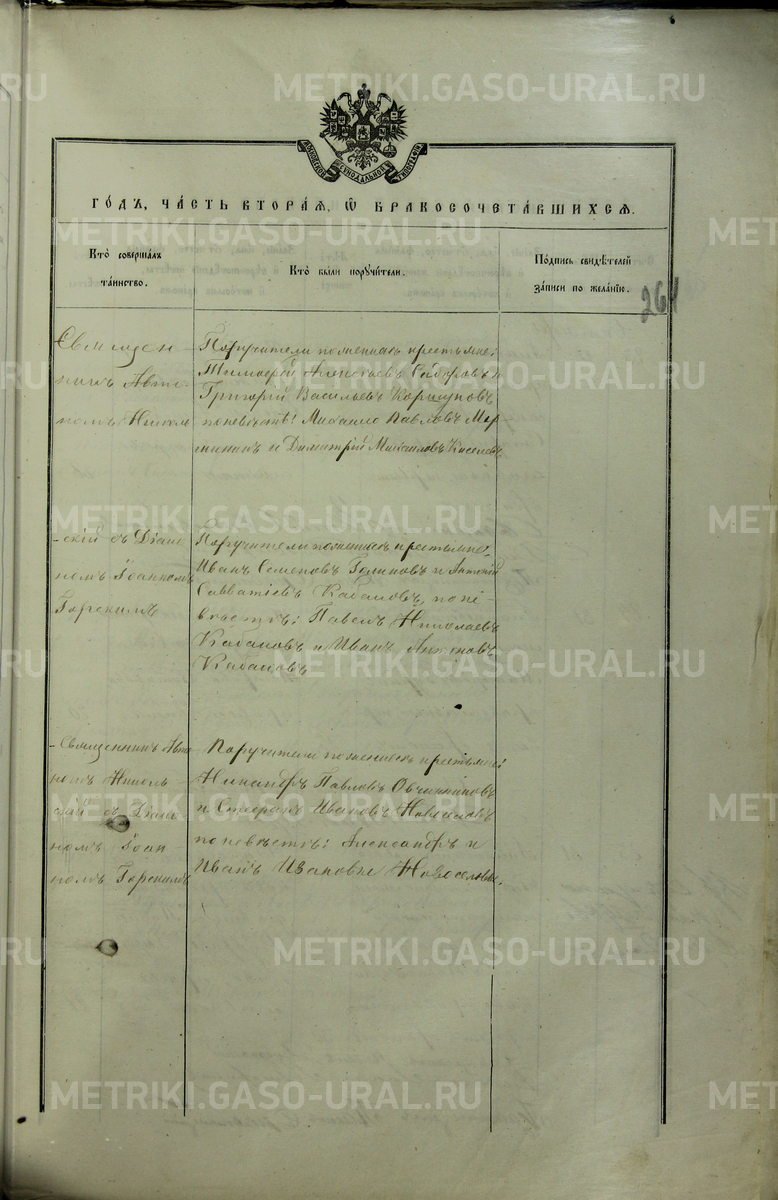 МОСКОВСКОЙ СѴНОДАЛЬНОЙ ТИПОГРАФІИ
ГО́ДЪ, ЧА́СТЬ ВТОРА́Я, Ѿ БРАКОСОЧЕТА́ВШИХСЯ.
Кто̀ соверша́лъ
та́инство.
Кто̀ бы́ли порꙋчи́тели.
По́дпись свидѣ́телей
за́писи по жела́нію.
264
Священ-
никъ Авто-
номъ Николь
Поручители по женихѣ крестьяне:
Тимоѳей Алексѣевъ Сидоровъ и
Григорій Васильевъ Коршуновъ
по невѣстѣ: Михаилъ Павловъ
и Димитрій Михаиловъ Киселевъ
-скій съ Діако
номъ Іоанномъ
Горскимъ
Поручители по женихѣ крестьяне:
Иванъ Семеновъ и Антоній
Савватіевъ Кабаковъ, по не-
вѣстѣ: Павелъ Николаевъ
Кабаковъ и Иванъ Антоновъ
Кабаковъ
-Священникъ Авто
номъ Николь
скій съ Діако
номъ Іоан-
номъ Горскимъ
Поручители по женихѣ крестьяне:
Никаноръ Павловъ Овчинниковъ
и Стефанъ Ивановъ Новоселовъ
по невѣстѣ: Александръ и
Иванъ Ивановы Новоселовы.
METRIKI.GASO-URAL.RU